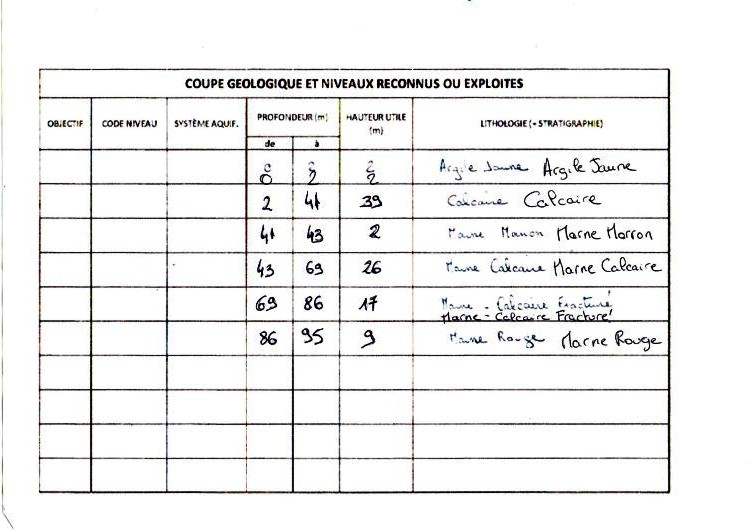 COUPE GEOLOGIQUE ET NIVEAUX RECONNUS OU EXPLOITES
OBJECTIF CODE NIVEAU SYSTÈME AQUIF. PROFONDEUR (m) HAUTEUR UTILE (m) LITHOLOGIE (+ STRATIGRAPHIE)
de à
0 2 2 Argile Jaune Argile Jaune
2 41 39 Calcaire Calcaire
41 43 2 Marne Marron Marne Marron
43 69 26 Marne Calcaire Marne Calcaire
69 86 17 Marne - Calcaire Fracturé
Marne - Calcaire Fracturé
86 95 9 Marne Rouge Marne Rouge